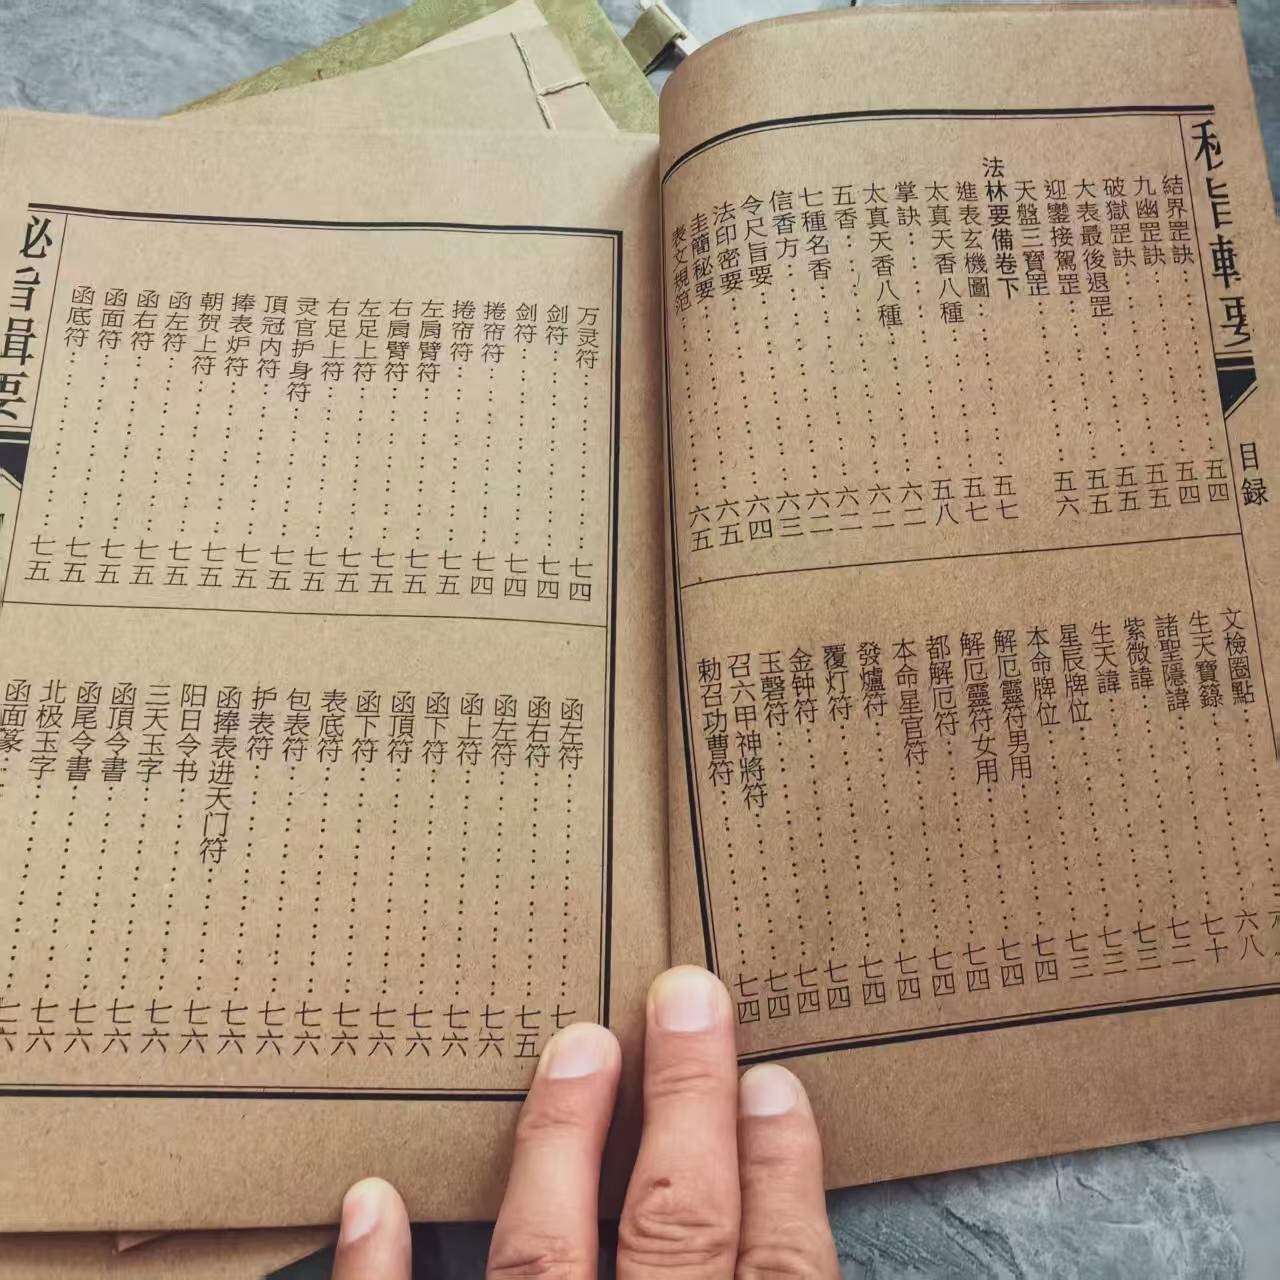 秘旨輯要
目録
結界罡訣……五四
九幽罡訣……五四
破獄罡訣……五五
大表最後退罡……五五
迎鑾接駕罡……五五
天盤三寶罡……五六
法林要備卷下
進表玄機圖……五七
太真天香八種……五七
掌訣……五八
太真天香八種……六二
五香……六二
七種名香……六二
信香方……六二
令尺旨要……六三
法印密要……六四
圭簡秘要……六五
表文規范……六五
文檢圈點……
生天寶籙……六八
諸聖隱諱……七十
紫微諱……七二
生天諱……七三
星辰牌位……七三
本命牌位……七三
解厄靈符男用……七四
解厄靈符女用……七四
都解厄符……七四
本命星官符……七四
發爐符……七四
覆灯符……七四
金钟符……七四
玉磬符……七四
召六甲神將符……七四
勅召功曹符……七四
万灵符……七四
剑符……七四
剑符……七四
捲帘符……七四
捲帘符……七五
左肩臂符……七五
右肩臂符……七五
左足上符……七五
右足上符……七五
灵官护身符……七五
頂冠内符……七五
捧表炉符……七五
朝贺上符……七五
函左符……七五
函右符……七五
函面符……七五
函底符……七五
函左符……七
函右符……七五
函左符……七六
函上符……七六
函下符……七六
函頂符……七六
函下符……七六
表底符……七六
包表符……七六
护表符……七六
函捧表进天门符……七六
阳日令书……七六
三天玉字……七六
函頂令書……七六
函尾令書……七六
北极玉字……七六
函面篆……七六
秘旨輯要